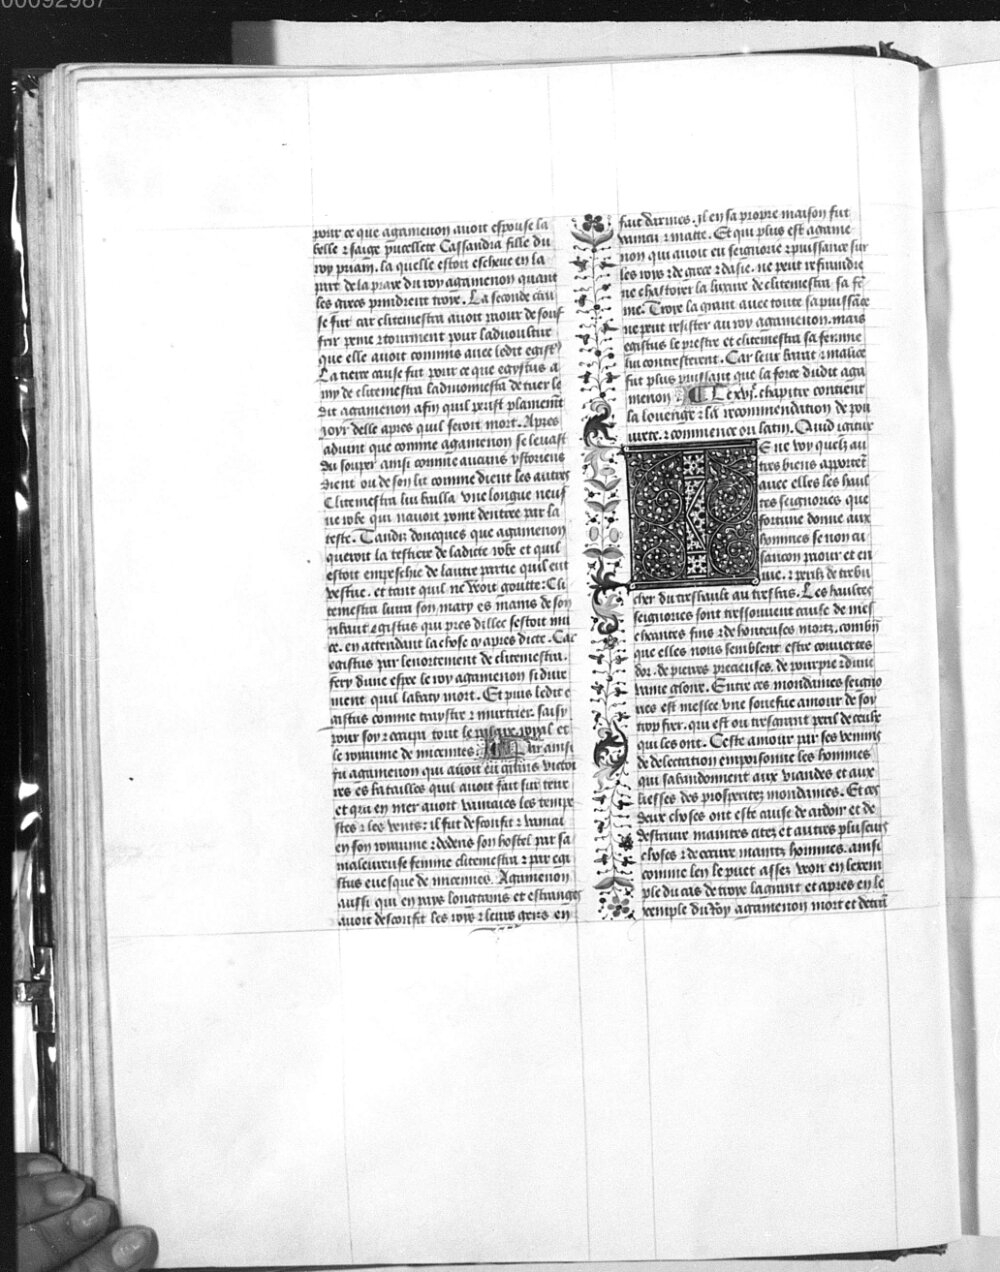 00092987
pour ce que agamenon auoit espouse la
belle ⁊ saige pucellete Cassandra fille du
roy priam. la quelle estoit escheue en la
part de la praye du roy agamenon quant
les grecs prindrent troye. La seconde cau
se fut car clitemestra auoit paour de souf
frir peine ⁊ tourment pour laduoultire
que elle auoit commis auec ledit egist⁹
La tierce cause fut pour ce que egystus a
my de clitemestra ladmonnesta de tuer le
dit agamenon afin quil peust plainemēt
ioyr delle apres quil seroit mort. Apres
aduint que comme agamenon se leuast
du souper ainsi comme aucuns ystoriens
dient ou de son lit comme dient les autres
Clitemestra lui bailla vne longue neuf
ue robe qui nauoit point dentree par la
teste. Tandiz doncques que agamenon
queroit la testiere de ladicte robe et quil
estoit empeschie de lautre partie quil eut
vestue. et tant quil ne veoit goutte: Cli
temestra liura son mary es mains de son
ribaut egistus qui pres dillec sestoit mu
ce. en attendant la chose cy apres dicte. Car
egistus par lenortement de clitemestra.
fery dune espee le roy agamenon si dure
ment quil labaty mort. Et puis ledit e
gistus comme traystre ⁊ murtrier. saisy
pour soy ⁊ occupa tout le palaix royal et
le royaume de micennes. Par ainsi
fu agamenon qui auoit eu victoi
res es batailles quil auoit fait sur terre
et qui en mer auoit vaincues les tempe
stes ⁊ les vents: il fut desconfit ⁊ vaincu
en son royaume ⁊ dedens son hostel par sa
maleureuse femme clitemestra ⁊ par egi
stus euesque de micennes. Agamenon
aussi qui en pays longtains et estranges
auoit desconfit les roys ⁊ leurs gens en
fait darmes. il en sa propre maison fut
vaincu ⁊ matte. Et qui plus est agame
non qui auoit eu seignorie ⁊ puissance sur
les roys ⁊ de grece ⁊ dasie. ne peut refraindre
ne chastoier la luxure de clitemestra sa fē
me. Troye la grant auec toute sa puissāce
ne peut resister au roy agamenon. mais
egistus le prestre et clitemestra sa femme
lui contresterent. Car leur barat ⁊ malice
fut plus puissant que la force dudit aga
menon Le xvj. chapitre contient
la louenge ⁊ la recommendation de pou
urete. ⁊ commence ou latin. Quid igitur
E ne voy quelz au
tres biens apportēt
auec elles les haul
tes seignories que
fortune donne aux
hommes se non ai
sancon paour et en
uie. ⁊ perilz de trebu
cher du treshault au tresbas. Les haultes
seignories sont tressouuent cause de mes
chantes fins ⁊ de honteuses mortz. combiē
que elles nous semblent estre couuertes
dor. de pierres precieuses. de pourpre ⁊ dune
vaine gloire. Entre ces mondaines seigno
ries est meslee vne souefue amour de soy
trop fier. qui est ou tresgrant peril de ceulx
qui les ont. Ceste amour par ses venins
de delectation empoisonne les hommes
qui sabandonnent aux viandes et aux
liesses des prosperitez mondaines. Et ces
deux choses ont este cause de ardoir et de
destruire maintes citez et autres pluseurs
choses ⁊ de occire maintz hommes. ainsi
comme len le puet assez veoir en lexem
ple du cas de troye la grant et apres en le
xemple du Roy agamenon mort et detrū